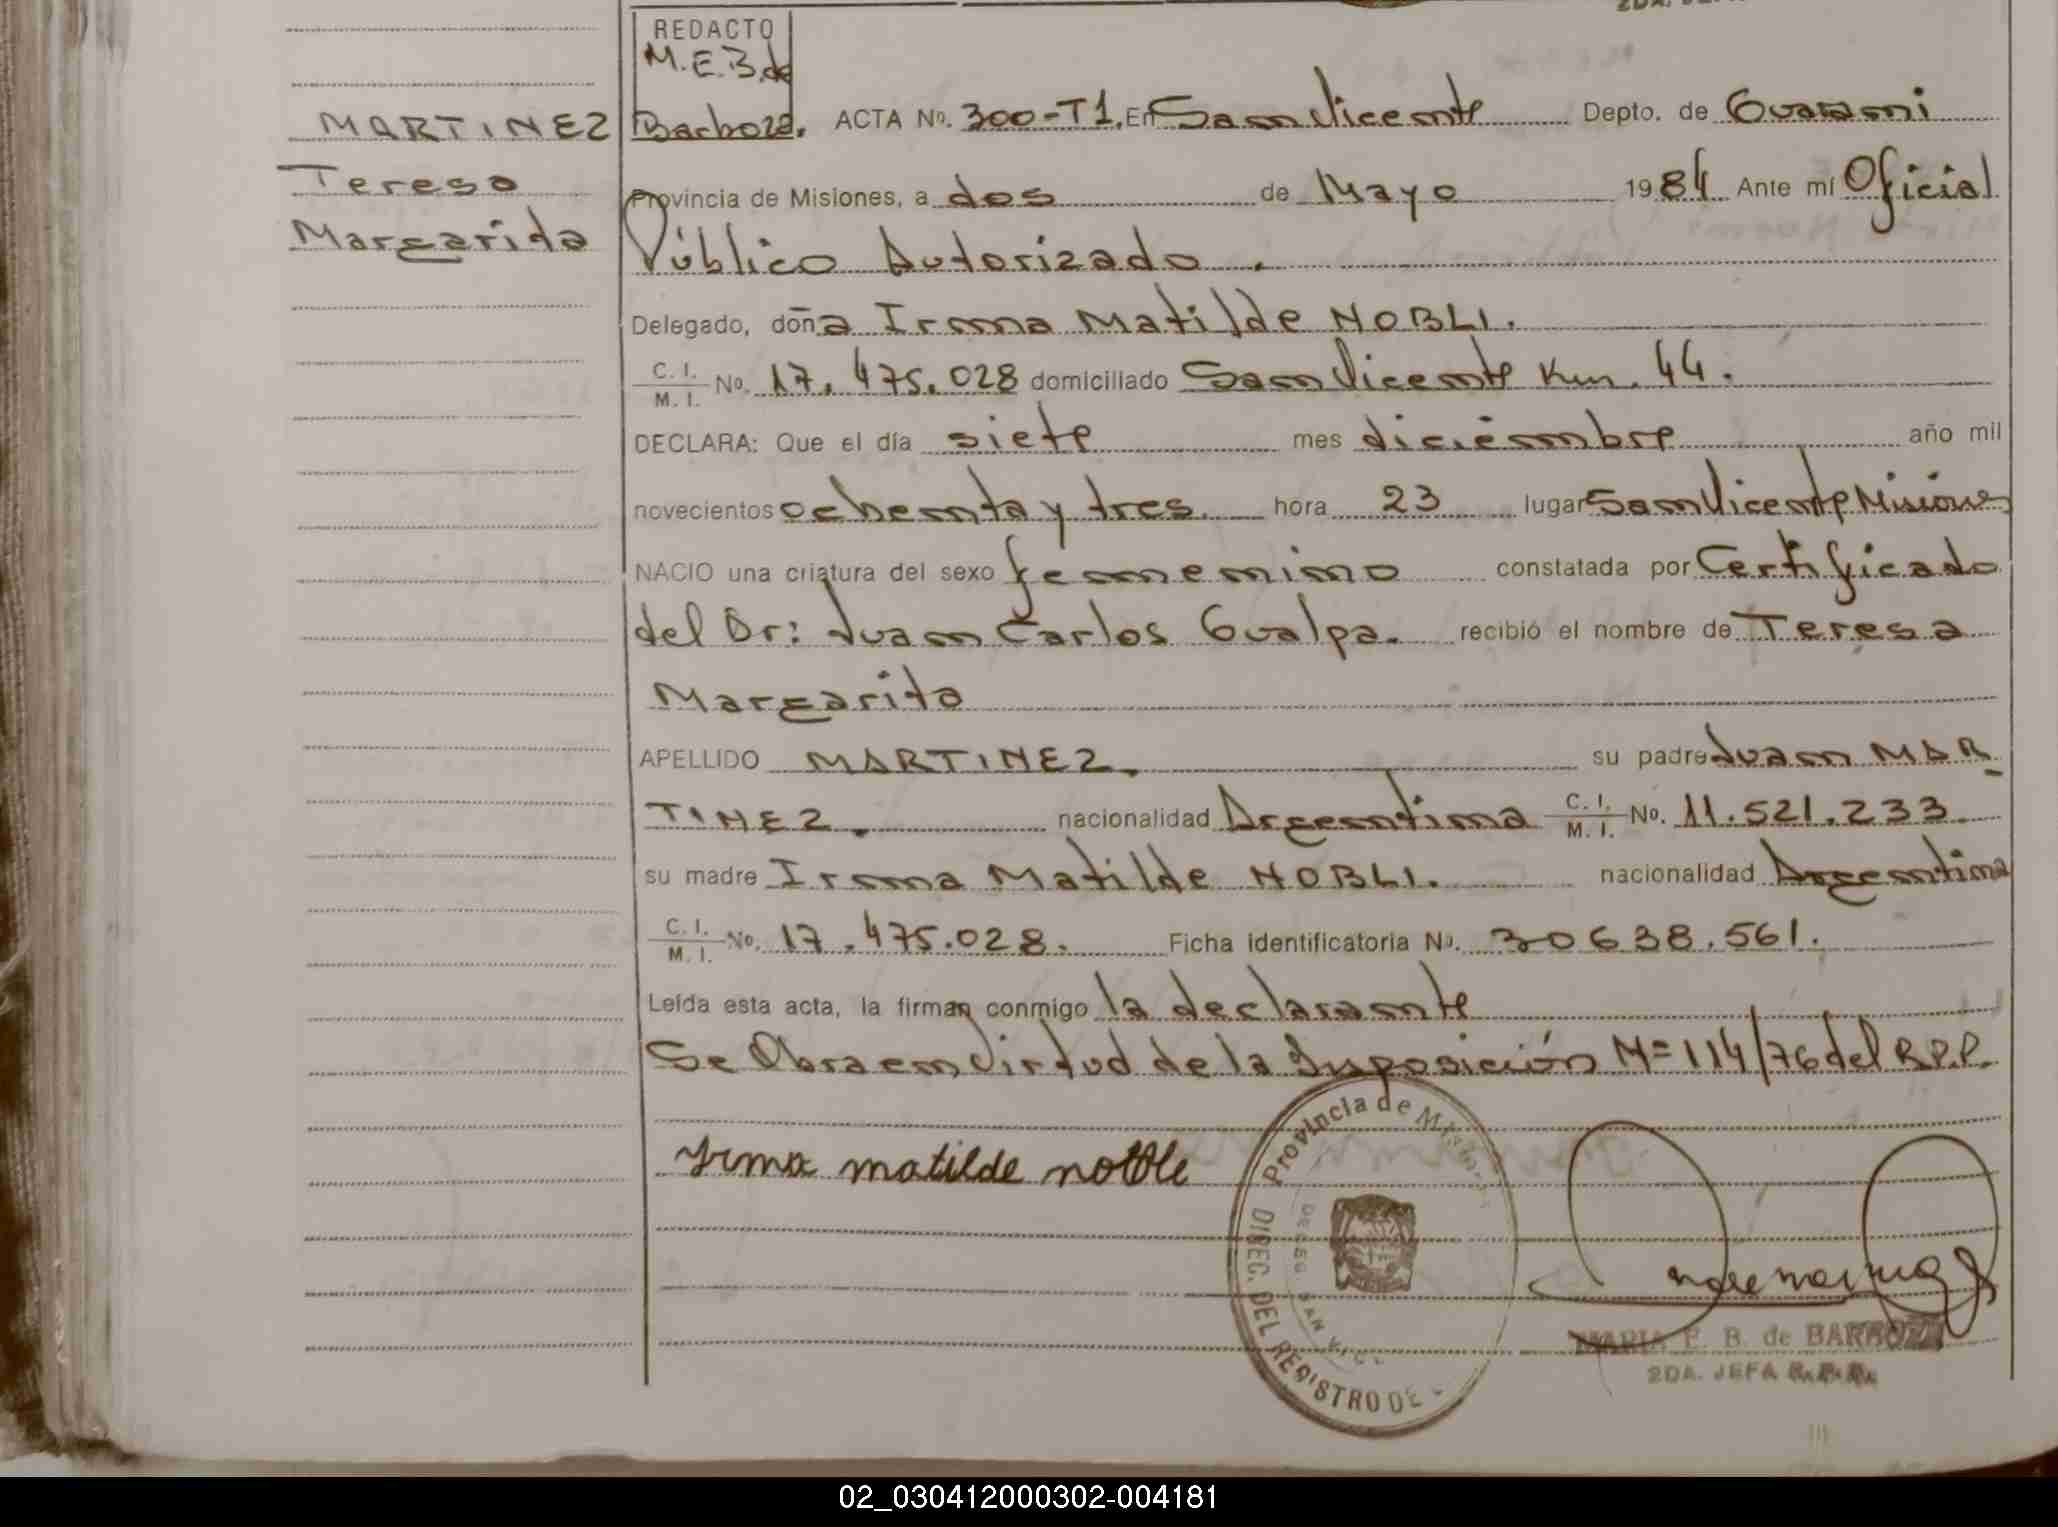 REDACTO
M.E.B. de
Barboza.
MARTINEZ
Teresa
Margarita
ACTA Nº. 300-T1. En San Vicente Depto. de Guarani
Provincia de Misiones, a dos de Mayo 1984 Ante mí Oficial
Público Autorizado.
Delegado, doña Irma Matilde NOBLI.
C. I. / M. I. Nº. 17.475.028 domiciliado San Vicente Km. 44.
DECLARA: Que el día siete mes diciembre año mil
novecientos ochenta y tres. hora 23 lugar San Vicente Misiones
NACIO una criatura del sexo femenino constatada por Certificado
del Dr: Juan Carlos Gualpa. recibió el nombre de Teresa
Margarita
APELLIDO MARTINEZ. su padre Juan MAR-
TINEZ. nacionalidad Argentina C. I. / M. I. Nº. 11.521.233.
su madre Irma Matilde NOBLI. nacionalidad Argentina
C. I. / M. I. Nº. 17.475.028. Ficha identificatoria Nº. 30638.561.
Leída esta acta, la firman conmigo la declarante
Se Obra en Virtud de la Disposición Nº 114/76 del R.P.P.
Irma matilde noblle
Provincia de Misiones
DIREC. DEL REGISTRO DE
DELEG. SAN VICE
MARIA E. B. de BARBOZA
2DA. JEFA R.P.P.
02_030412000302-004181